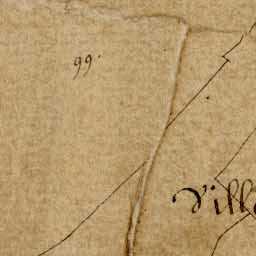 99.
Villa